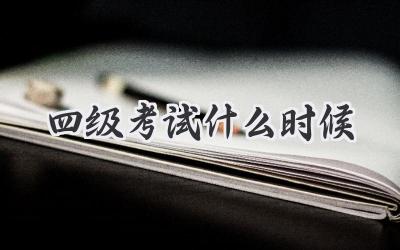 四级考试什么时候